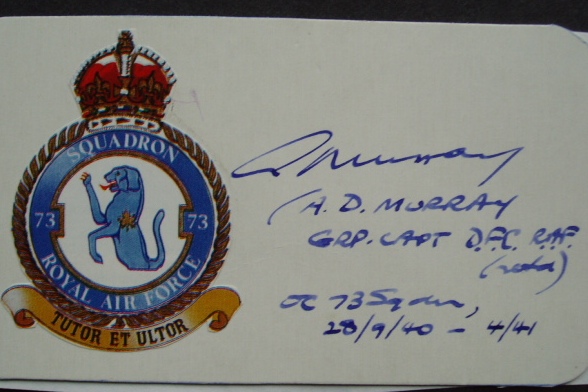 SQUADRON
73 73
ROYAL AIR FORCE
TUTOR ET ULTOR
A. Murray
(A. D. MURRAY
GRP. CAPT D.F.C. R.A.F.
(retd)
OC 73 Sqdn,
28/9/40 - 4/41